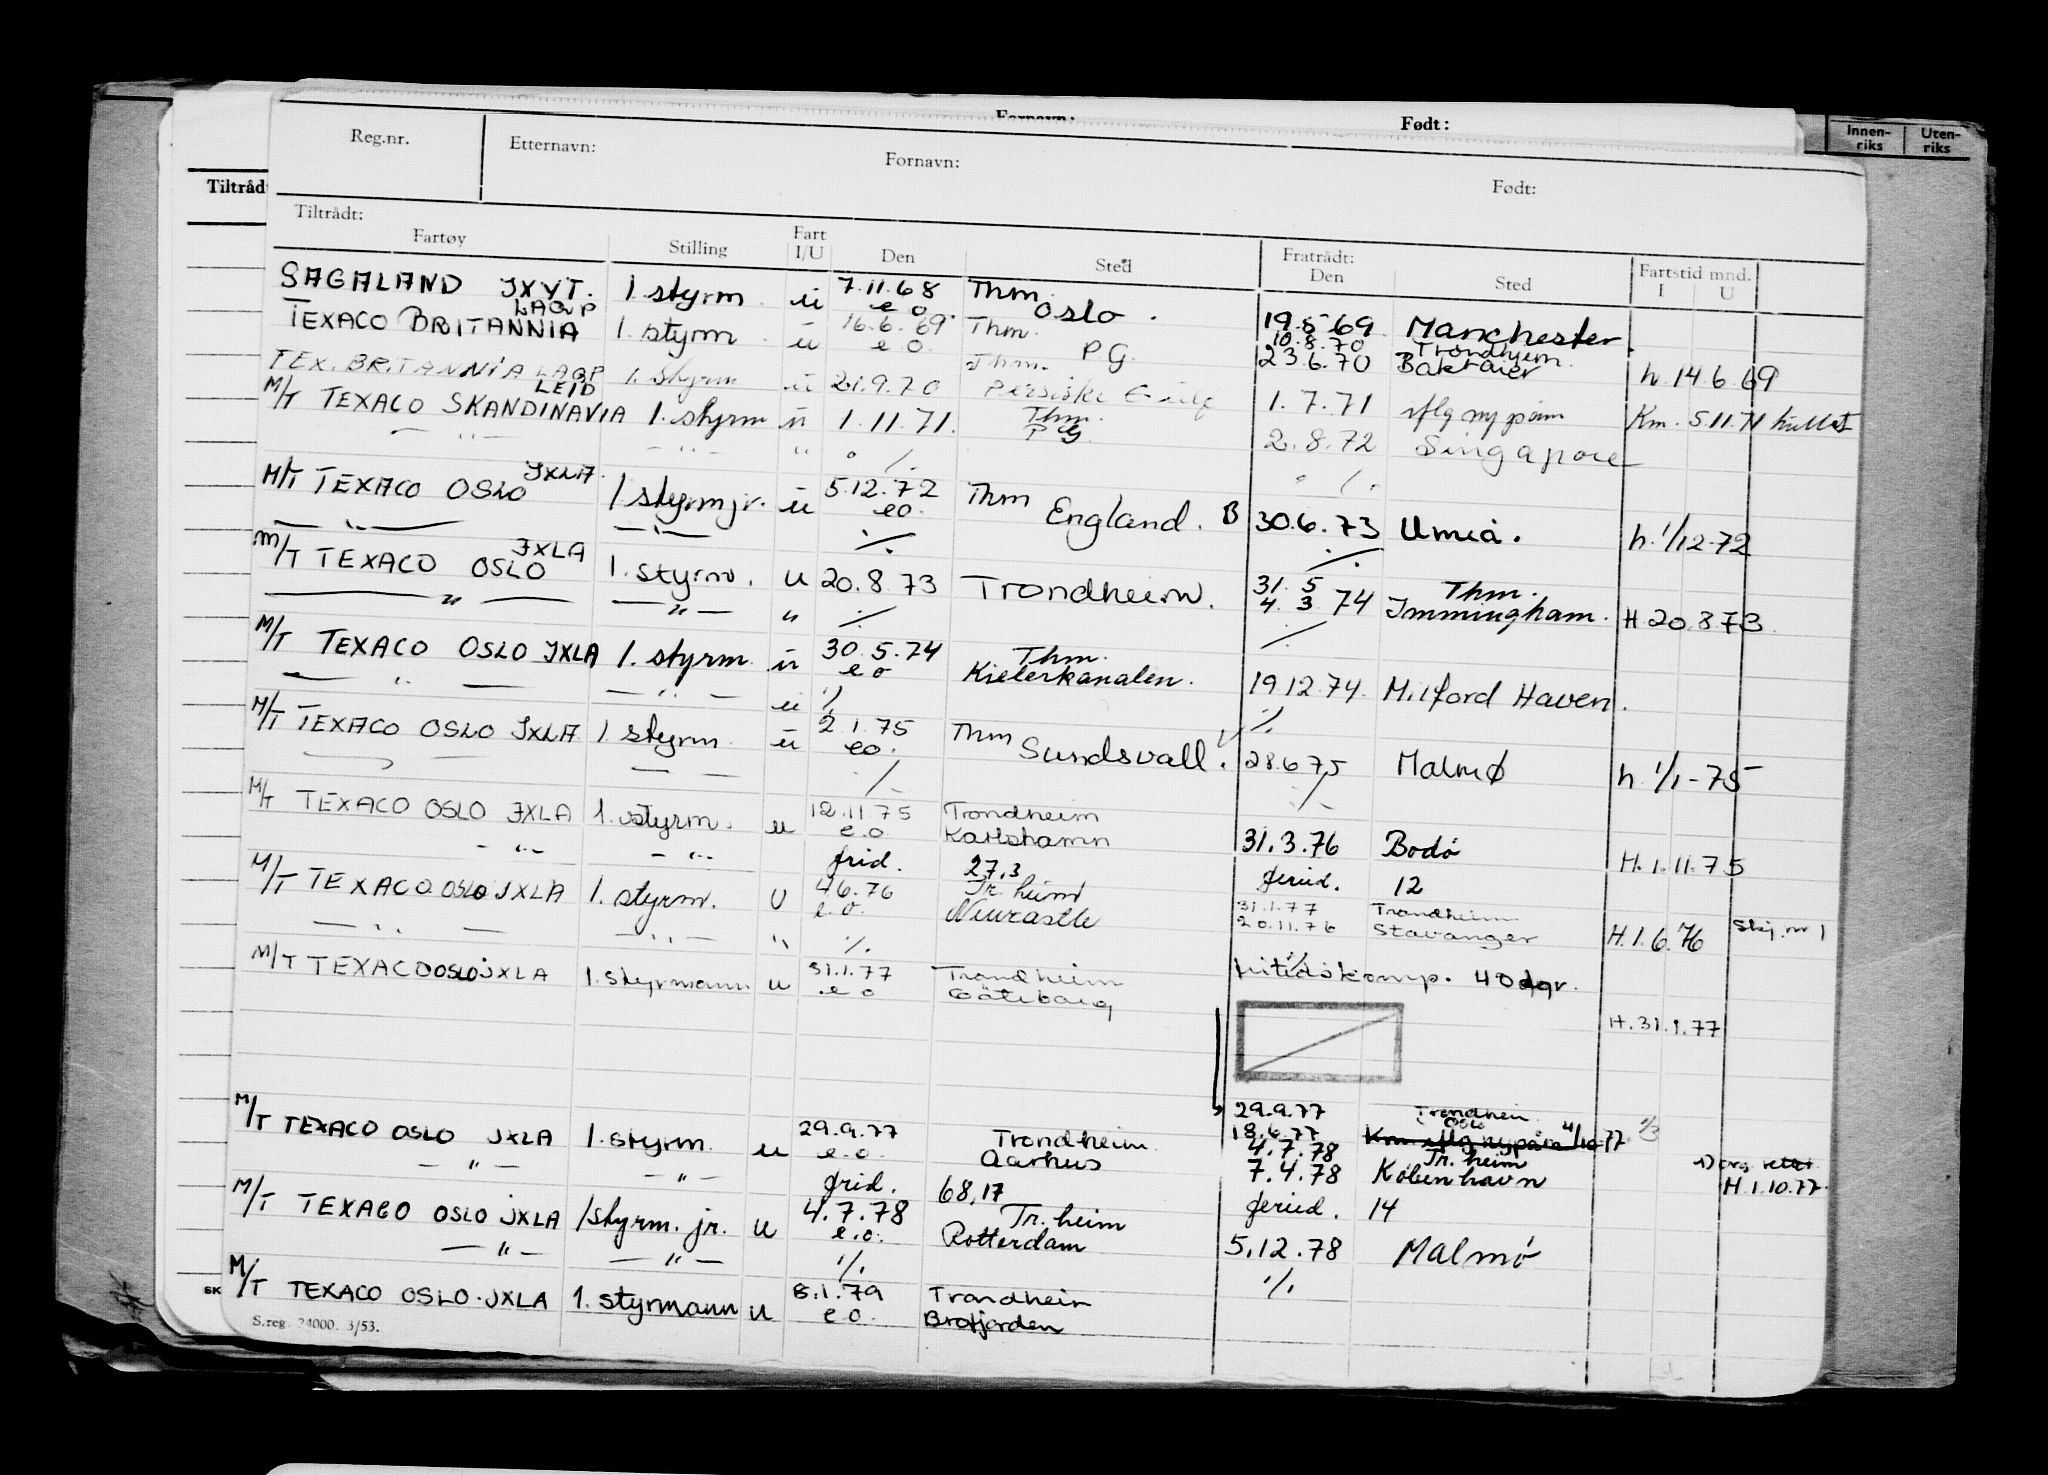 Fornavn: Født:
Innen-riks Uten-riks
Reg.nr. Etternavn: Fornavn: Født:
Tiltråd
Tiltrådt: Fratrådt:
Fartøy Stilling Fart I/U Den Sted Den Sted Fartstid mnd. I U
SAGALAND JXYT. 1. styrm ü 7.11.68 e o. Thm. Oslo. 19.5.69 Manchester.
TEXACO BRITANNIA LAQP 1. styrm ü 16.6.69 e o. Thm. PG. 10.8.70 Trondhjem. 23.6.70 h. 14.6.69
TEX. BRITANNIA LAQP 1. styrm ü 21.9.70 Thm. Persiske Gulf 1.7.71 Km. 5.11.71
M/T TEXACO SKANDINAVIA LEID 1. styrm ü 1.11.71. Thm. PG 2.8.72 Singapore
— " — — " — " ./. ./.
M/T TEXACO OSLO JXLA. 1 styrm jr. ü 5.12.72 eo. Thm England. B 30.6.73 Umeå. h. 1/12-72
— " — — " — ./. ./.
M/T TEXACO OSLO JXLA 1. styrm. u 20.8.73 Trondheim. 31.5 4.3.74 Thm. Immingham. H 20.8.73.
— " — — " — " ./. ./.
M/T TEXACO OSLO JXLA 1. styrm. ü 30.5.74 e o Thm. Kielerkanalen. 19.12.74. Milford Haven.
— " — — " — ü ./. ./.
M/T TEXACO OSLO JXLA 1. styrm. ü 2.1.75 eo. Thm Sundsvall. 28.6.75 Malmø h. 1/1-75
— — — — ./. ./.
M/T TEXACO OSLO JXLA 1. styrm. u 12.11.75 e.o. Trondheim Karlshamn 31.3.76 Bodö H.1.11.75
- " - - " - frid. 27,3 feried. 12
M/T TEXACO OSLO JXLA 1. styrm. U 4.6.76 e.o. Tr.heim Newcastle 31.1.77 Trondheim 20.11.76 Stavanger H.1.6.76 Skj. nr 1
— " — — " — " ./. ./.
M/T TEXACO OSLO JXLA 1. styrmann u 31.1.77 e o Trondheim Göteborg fritidskomp. 40 dgr.
H.31.1.77
29.9.77 Trondheim
18.6.77 Oslo
M/T TEXACO OSLO JXLA 1. styrm. u 29.9.77 e.o. Trondheim Aarhus Km iflg nypåm 4/10-77
4.7.78 Tr.heim
- " - - " - frid. 68,17 7.4.78 København H.1.10.77.
M/T TEXACO OSLO JXLA 1styrm. jr. U 4.7.78 e.o. Tr.heim Rotterdam feried. 14
5.12.78 Malmö
— " — — " — ./. ./.
M/T TEXACO OSLO. JXLA 1. styrmann u 8.1.79 e o. Trondheim Brofjorden
S.reg. 24000. 3/53.